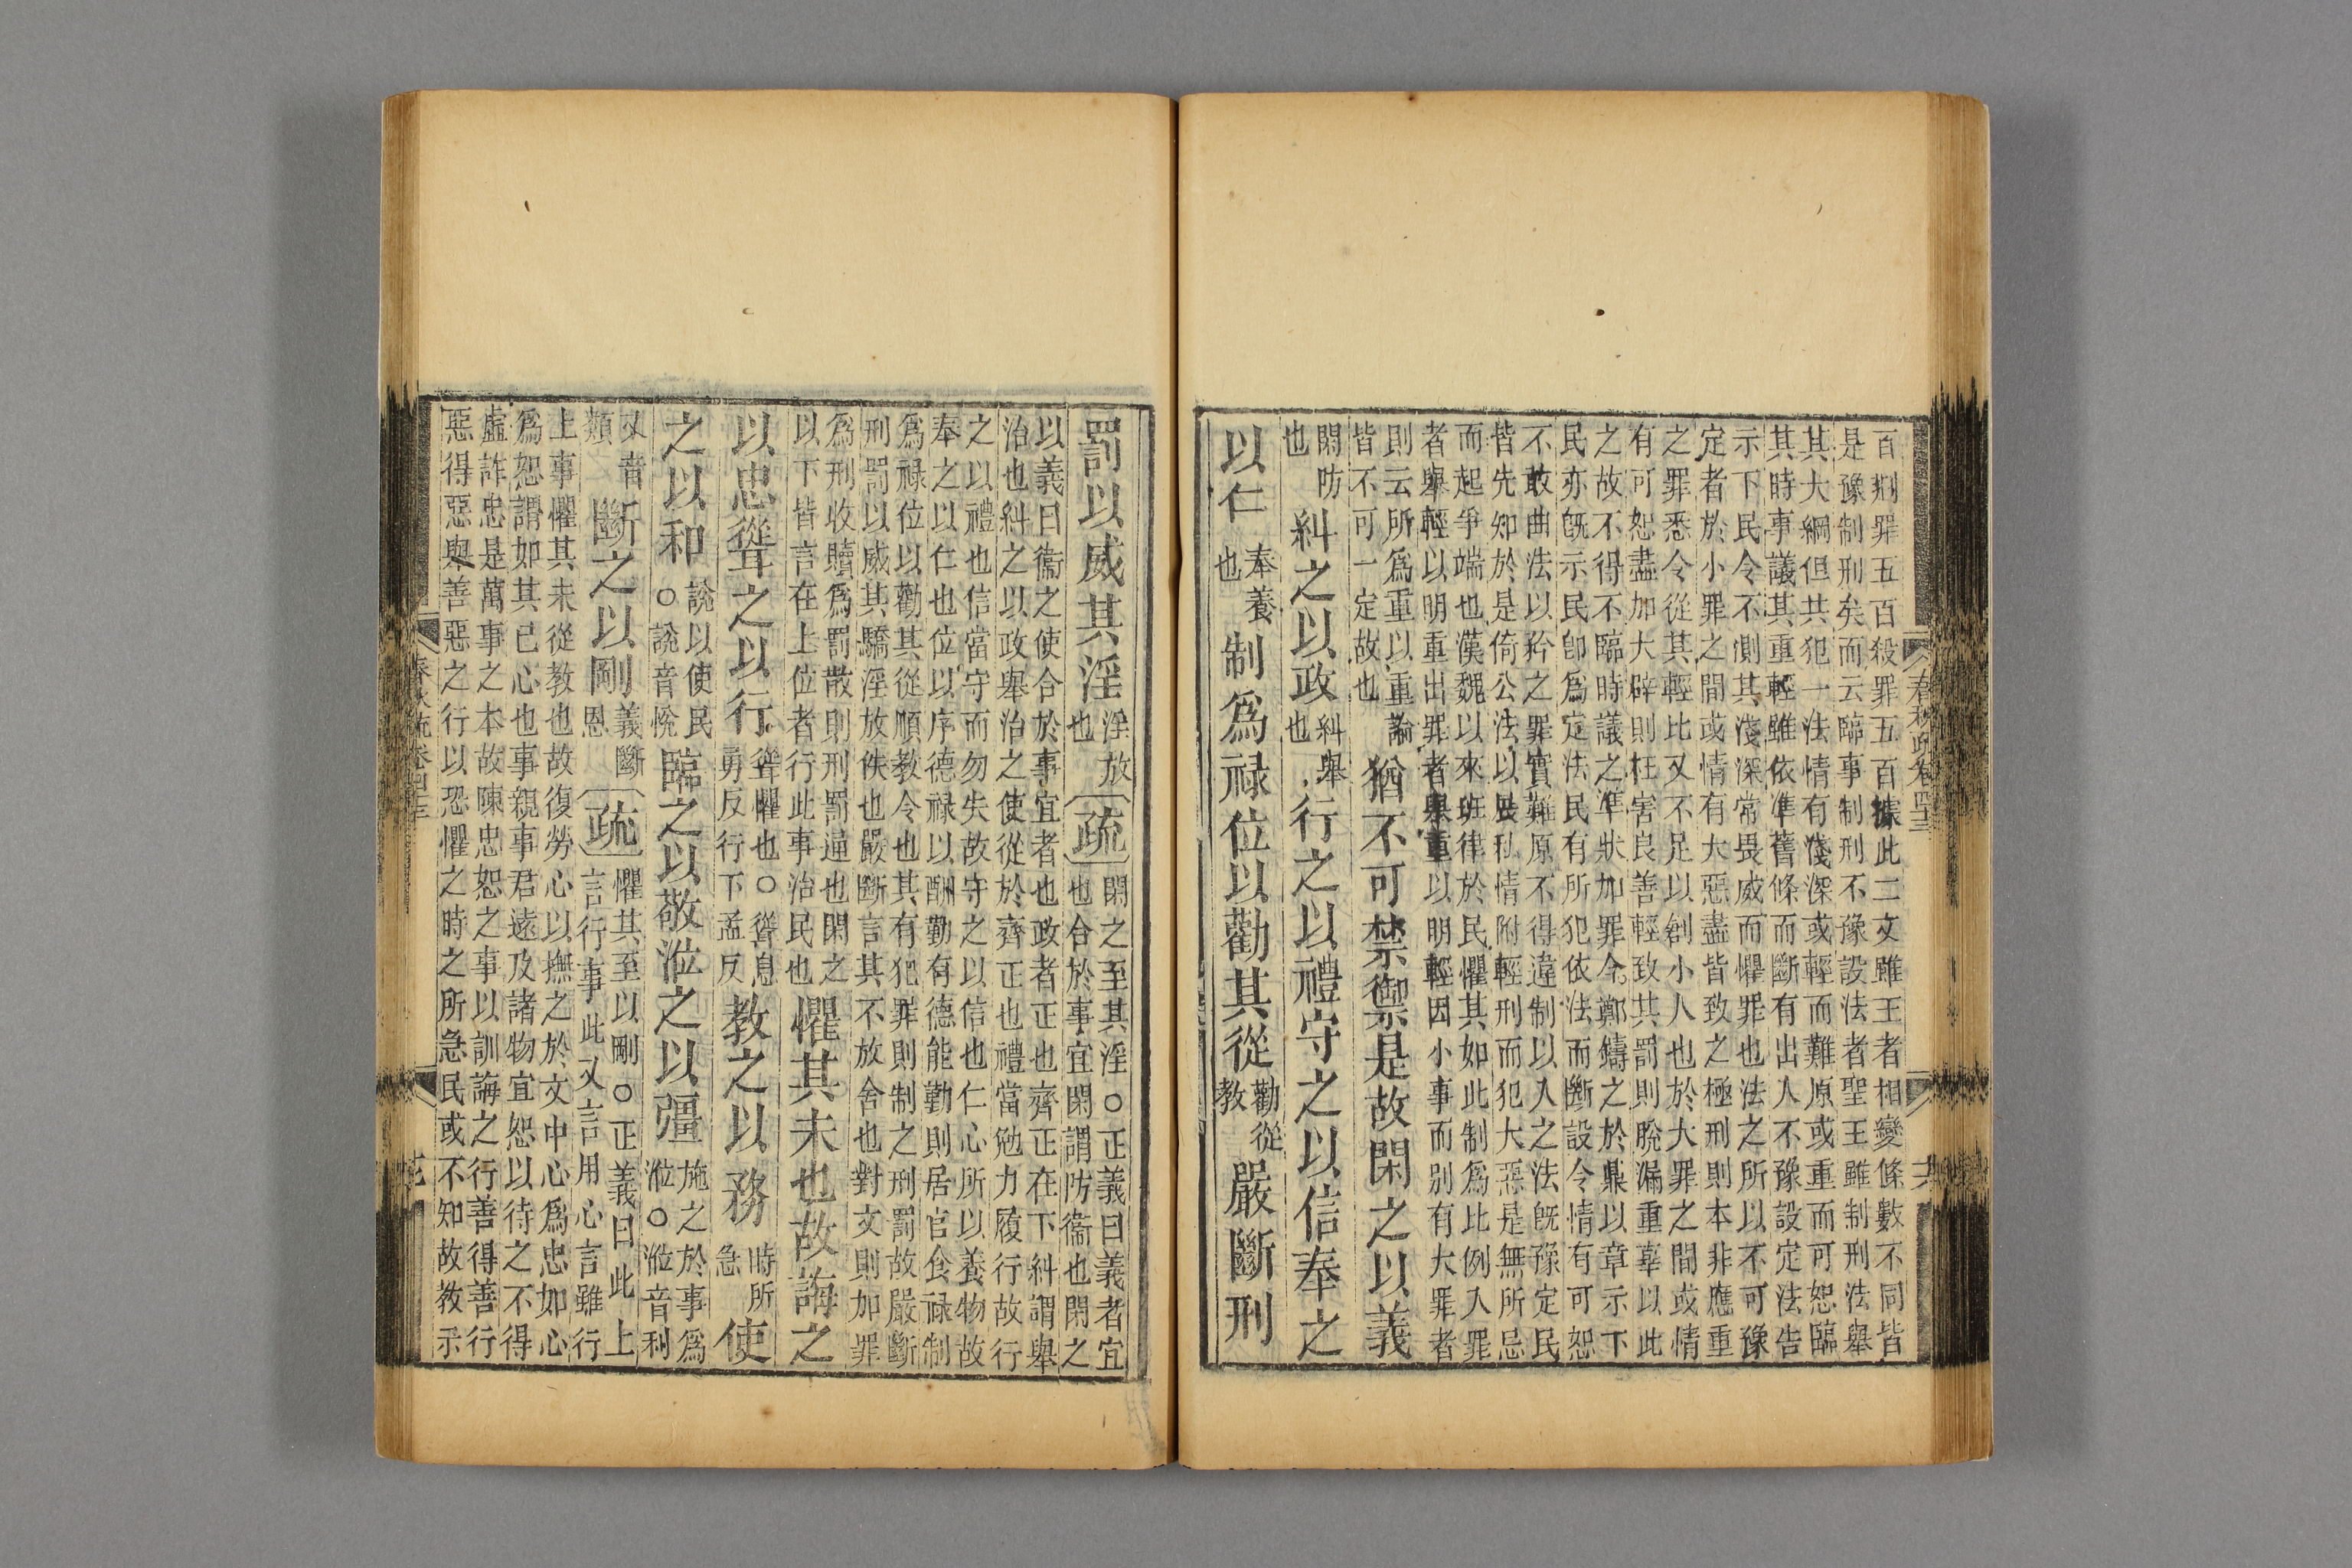 百刑罪五百殺罪五百據此二文雖王者相變條數不同皆
是豫制刑矣而云臨事制刑不豫設法者聖王雖制刑法舉
其大綱但共犯一法情有淺深或輕而難原或重而可恕臨
其時事議其重輕雖依準舊條而斷有出入不豫設定法告
示下民令不測其淺深常畏威而懼罪也法之所以不可豫
定者於小罪之間或情有大惡盡皆致之極刑則本非應重
之罪悉令從其輕比又不足以創小人也於大罪之間或情
有可恕盡加大辟則枉害良善輕致其罰則脫漏重辜以此
之故不得不臨時議之準狀加罪今鄭鑄之於鼎以章示下
民亦旣示民卽爲定法民有所犯依法而斷設令情有可恕
不敢曲法以矜之罪實難原不得違制以入之法旣豫定民
皆先知於是倚公法以展私情附輕刑而犯大惡是無所忌
而起爭端也漢魏以來班律於民懼其如此制爲比例入罪
者舉輕以明重出罪者舉重以明輕因小事而別有大罪者
則云所爲重以重論
皆不可一定故也
猶不可禁禦是故閑之以義
閑防
也
糾之以政
糾舉
也
行之以禮守之以信奉之
以仁
奉養
也
制爲祿位以勸其從
勸從
教
嚴斷刑
春秋疏卷四十三
共
罰以威其淫
淫放
也
疏
閑之至其淫○正義曰義者宜
也合於事宜閑謂防衞也閑之
以義曰衞之使合於事宜者也政者正也齊正在下糾謂舉
治也糾之以政舉治之使從於齊正也禮當勉力履行故行
之以禮也信當守而勿失故守之以信也仁心所以養物故
奉之以仁也位以序德祿以酬勤有德能勤則居官食祿制
爲祿位以勸其從順教令也其有犯罪則制之刑罰故嚴斷
刑罰以威其驕淫放佚也嚴斷言其不放舍也對文則加罪
爲刑收贖爲罰散則刑罰通也閑之
以下皆言在上位者行此事治民也
懼其未也故誨之
以忠聳之以行
聳懼也○聳息
勇反行下孟反
教之以務
時所
急
使
之以和
說以使民
○說音悅
臨之以敬涖之以彊
施之於事爲
涖○涖音利
又音
類
斷之以剛
義斷
恩
疏
懼其至以剛○正義曰此上
言行事此又言用心言雖行
上事懼其未從教也故復勞心以撫之於文中心爲忠如心
爲恕謂如其己心也事親事君遠及諸物宜恕以待之不得
虛詐忠是萬事之本故陳忠恕之事以訓誨之行善得善行
惡得惡舉善惡之行以恐懼之時之所急民或不知故教示